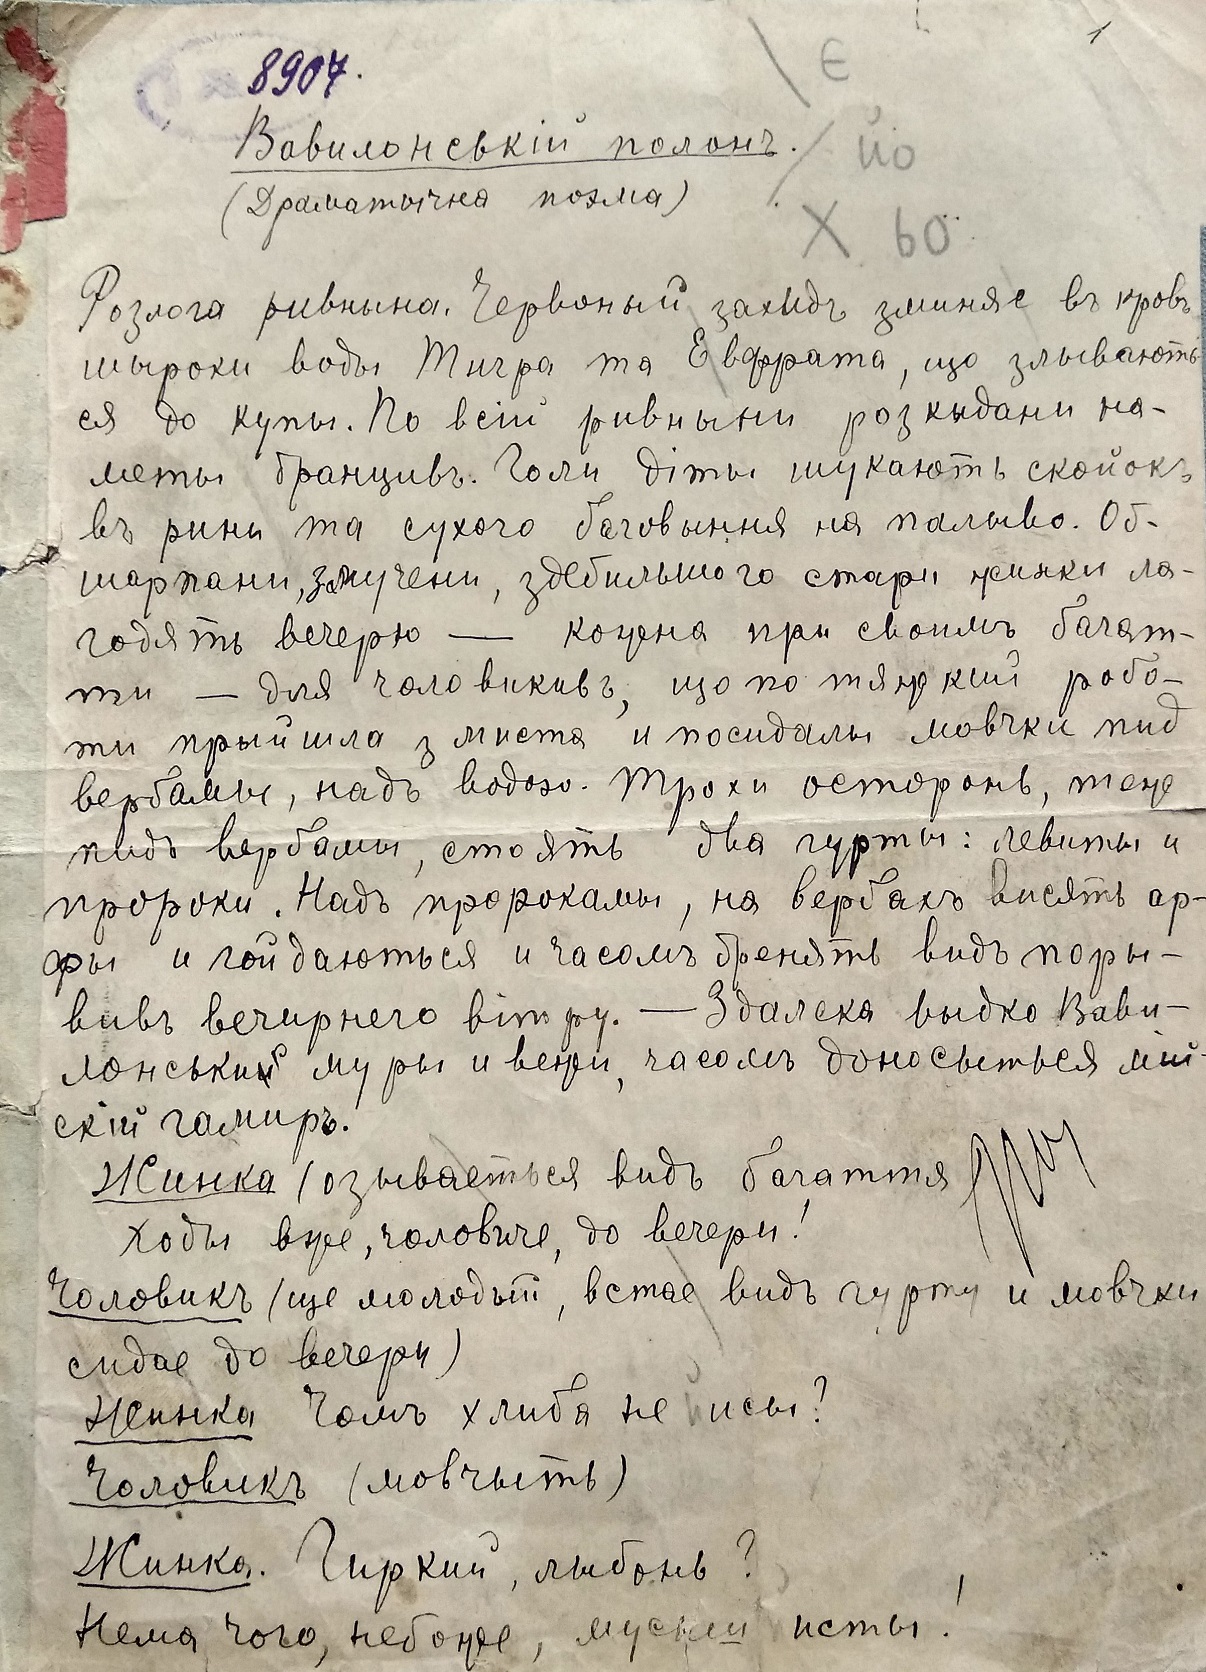 1
8907.
є
Вавилонській полонъ.
йо
(Драматычна поэма)
Х ьо
Розлога ривнына. Червоный захидъ зминяе въ кровъ
шыроки воды Тигра та Евфрата, що злывають
ся до купы. По всій ривныни розкыдани на-
меты бранцивъ. Голи діты шукають скойокъ
въ рини та сухого баговыння на палыво. Об-
шарпани, змучени, здебильшого стари жинки ла-
годять вечерю — кожна при своимъ багат-
ти — для чоловикивъ, що по тяжкий робо-
ти прыйшла з миста и посидалы мовчки пид
вербамы, надъ водою. Трохи осторонь, теже
пидъ вербамы, стоять два гурты: левиты и
пророки. Надъ пророкамы, на вербахъ висять ар-
фы и гойдаються и часомъ бренять видъ поры-
вивъ вечирнего вітру. — Здалека выдко Вави-
лонський муры и вежи, часомъ доносыться мій-
скій гамиръ.
Жинка (озываеться видъ багаття)
Ходы вже, чоловиче, до вечери!
Чоловикъ (ще молодый, встае видъ гурту и мовчки
сидае до вечери)
Жинка Чомъ хлиба не йисы?
Чоловикъ (мовчыть)
Жинка. Гиркий, лыбонь?
Нема чого, небоже, мусыш исты!